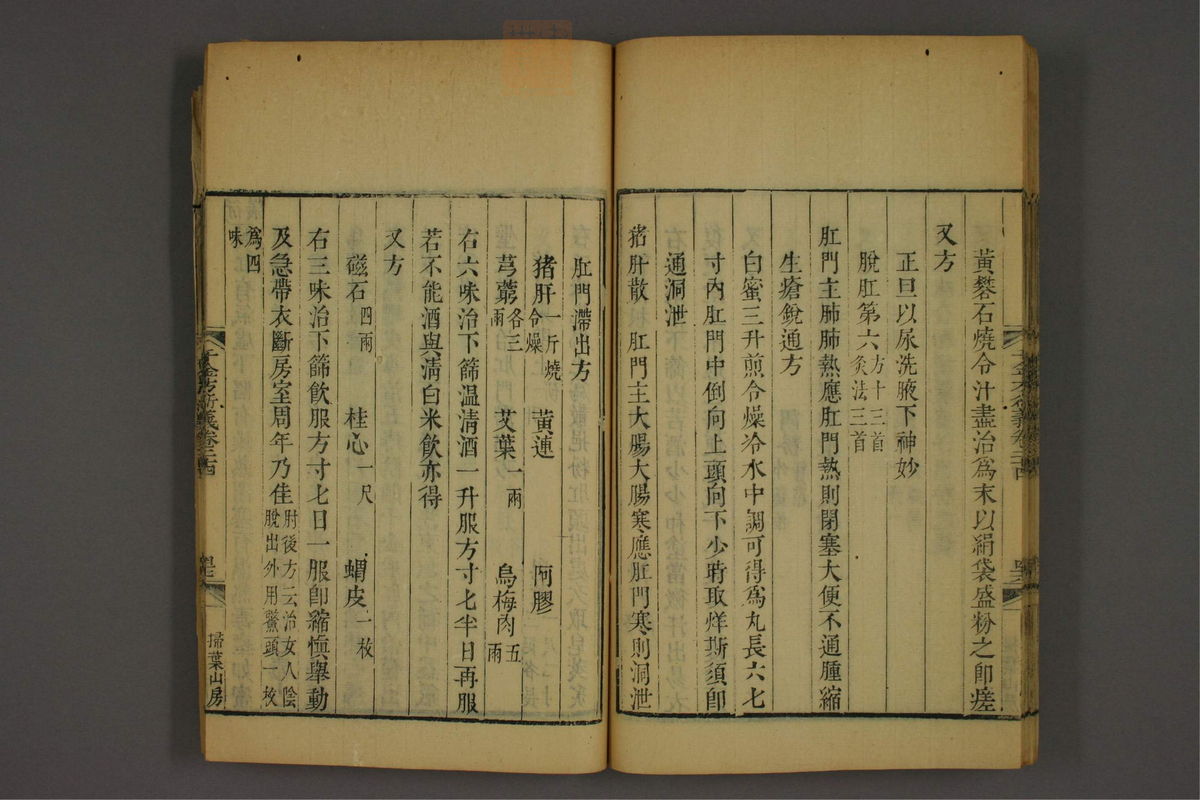 黃礬石燒令汁盡治為末以絹袋盛粉之即瘥
又方
正旦以尿洗腋下神妙
脫肛第六方十三首灸法三首
肛門主肺肺熱應肛門熱則閉塞大便不通腫縮
生瘡銳通方
白蜜三升煎令燥冷水中調可得為丸長六七
寸內肛門中倒向上頭向下少時取烊斯須即
通洞泄
豬肝散 肛門主大腸大腸寒應肛門寒則洞泄
肛門滯出方
豬肝一斤燒令燥 黃連 阿膠
芎藭各三兩 艾葉一兩 烏梅肉五兩
右六味治下篩溫清酒一升服方寸七半日再服
若不能酒與清白米飲亦得
又方
磁石四兩 桂心一尺 蝟皮一枚
右三味治下篩飲服方寸七日一服即縮慎舉動
及急帶衣斷房室周年乃佳肘後方云治女人陰脫出外用鱉頭一枚
為四味
千金方衍義卷二十四
掃葉山房